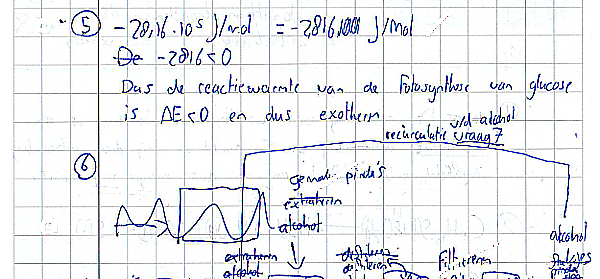 5 -28,16·10⁵ J/mol = -2.816.000 J/mol
De -2816<0
Dus de reactiewarmte van de Fotosynthese van glucose
is ΔE<0 en dus exotherm
v/d alcohol
recirculatie vraag 7
6
gemalen pinda's
extraheren
alcohol
alcohol
extraheren
alcohol
destilleren
Filtreren